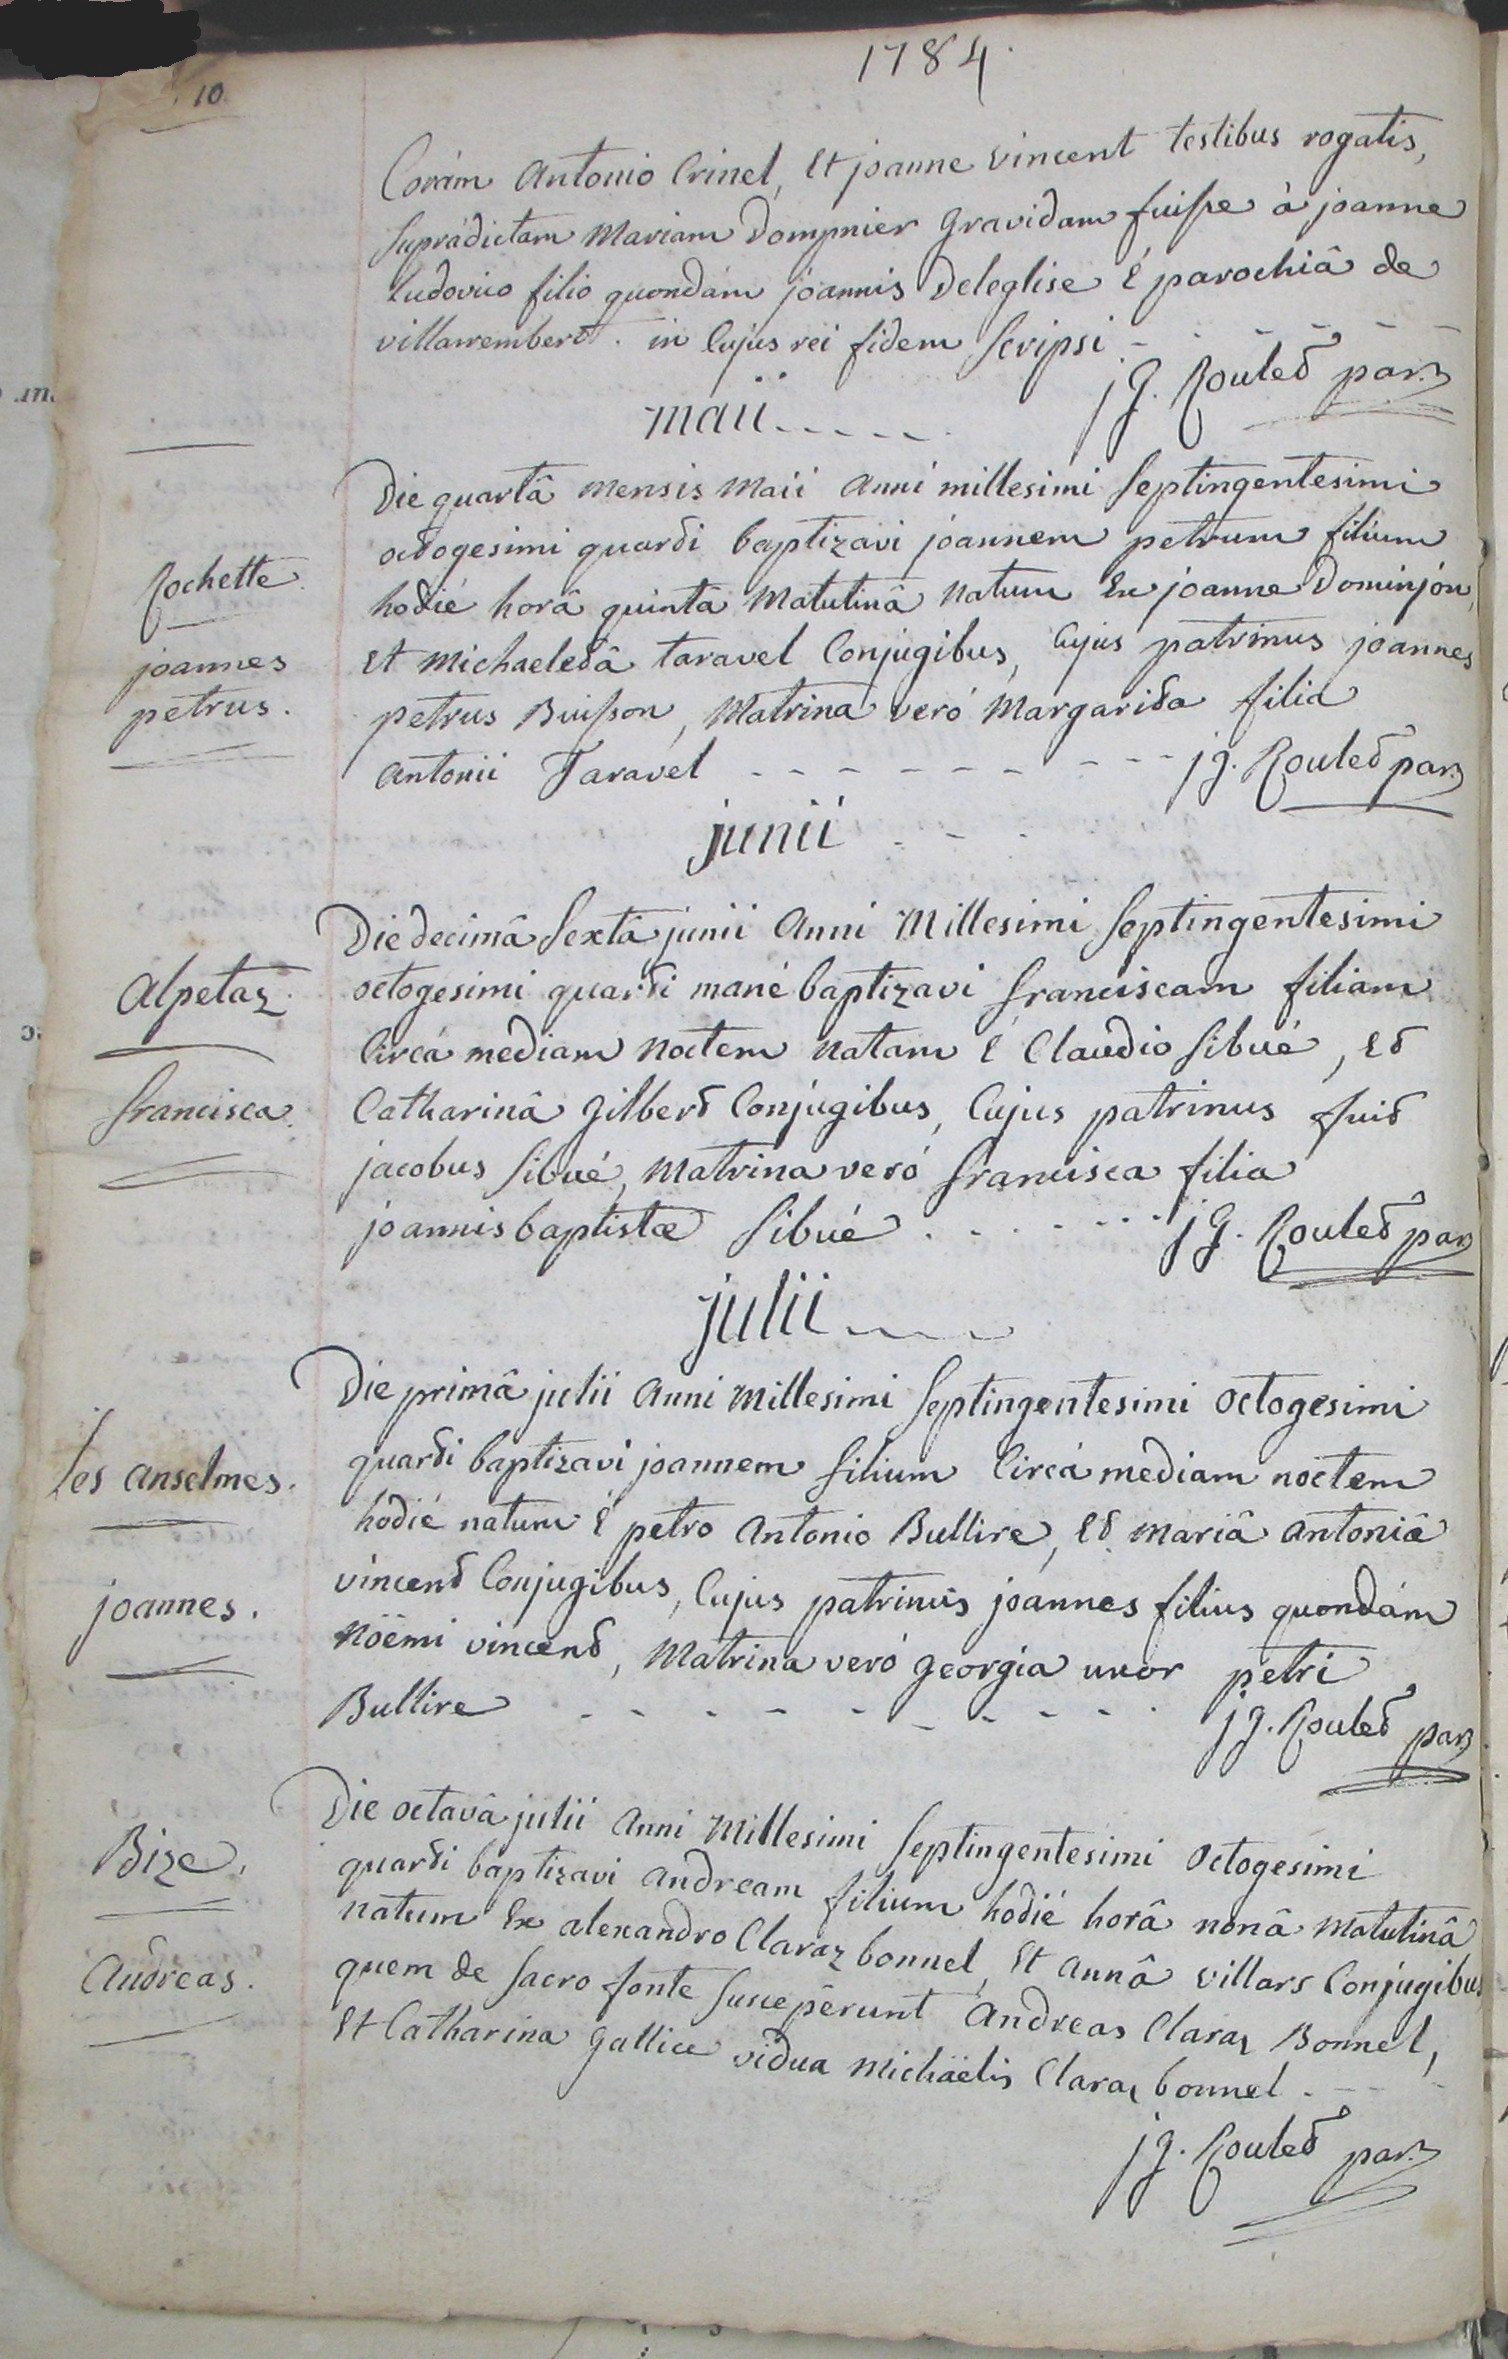 10.
1784.
Corám Antonio Crinel, Et joanne vincent testibus rogatis,
suprádictam Mariam Dompnier gravidam fuisse à joanne
Ludovico filio quondám joannis Deleglise é parochiâ de
villarrembert. in Cujus rei fidem scripsi
j G. Roulet par.
maii
Die quartâ mensis Maii Anni millesimi septingentesimi
octogesimi quarti baptizavi joannem petrum filium
hodié horâ quintâ Matutinâ natum Ex joanne Dominjon,
Et Michaeletâ taravel Conjugibus, Cujus patrinus joannes
petrus Buisson, Matrina veró Margarita filia
Antonii Taravel j g. Roulet par
Rochette.
joannes
petrus.
junii
Die decimâ sextâ junii Anni Millesimi septingentesimi
octogesimi quarti mané baptizavi franciscam filiam
Circá mediam noctem natam é Claudio sibué, Et
Catharinâ gilbert Conjugibus, Cujus patrinus fuit
jacobus sibué, Matrina veró francisca filia
joannis baptistæ sibué j G. Roulet par
Alpetaz.
francisca.
julii
Die primâ julii Anni Millesimi septingentesimi octogesimi
quarti baptizavi joannem filium Circá mediam noctem
hodié natum é petro Antonio Bullire, Et mariâ Antoniâ
vincent Conjugibus, Cujus patrinus joannes filius quondám
Nöemi vincent, Matrina veró georgia uxor petri
Bullire j g. Roulet par
les anselmes.
joannes.
Die octavâ julii Anni Millesimi septingentesimi octogesimi
quarti baptizavi Andream filium hodié horâ nonâ Matutinâ
natum Ex alexandro Claraz bonnel, Et Annâ villars Conjugibus
quem de sacro fonte suscepêrunt Andreas Claraz Bonnel,
Et Catharina gallice vidua Michäelis Claraz bonnel.
j g. Roulet par.
Bize.
Andreas.